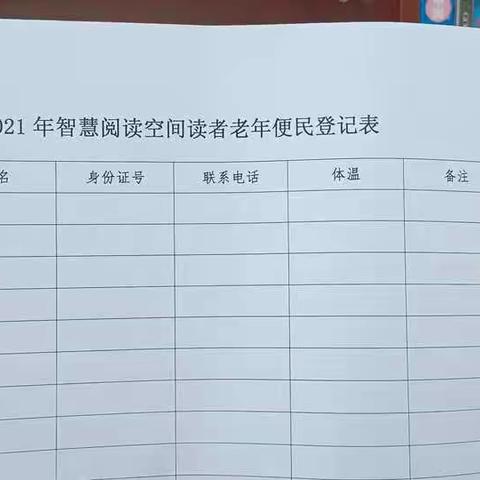 021年智慧阅读空间读者老年便民登记表
名 身份证号 联系电话 体温 备注